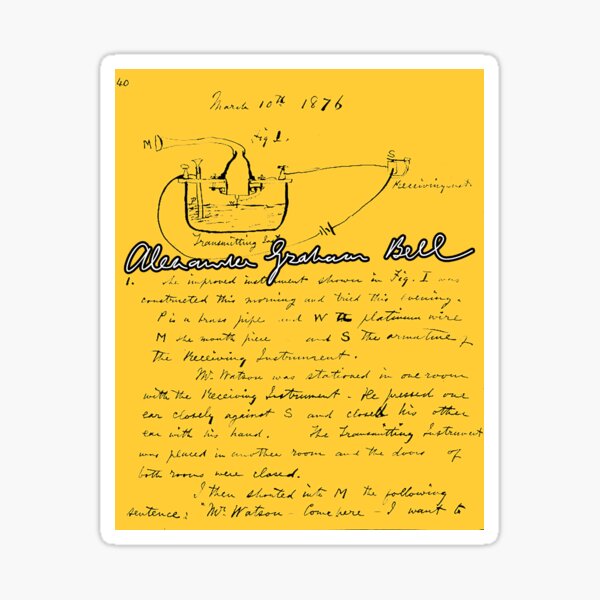 40
March 10th 1876
Fig 1.
M
S
Receiving Inst.
Transmitting Inst
Alexander Graham Bell
1. The improved instrument shown in Fig. I was
constructed this morning and tried this evening.
P is a brass pipe and W the platinum wire
M the mouth piece and S the armature of
the Receiving Instrument.
Mr. Watson was stationed in one room
with the Receiving Instrument - He pressed one
ear closely against S and closed his other
ear with his hand. The Transmitting Instrument
was placed in another room and the doors of
both rooms were closed.
I then shouted into M the following
sentence: "Mr. Watson - Come here - I want to